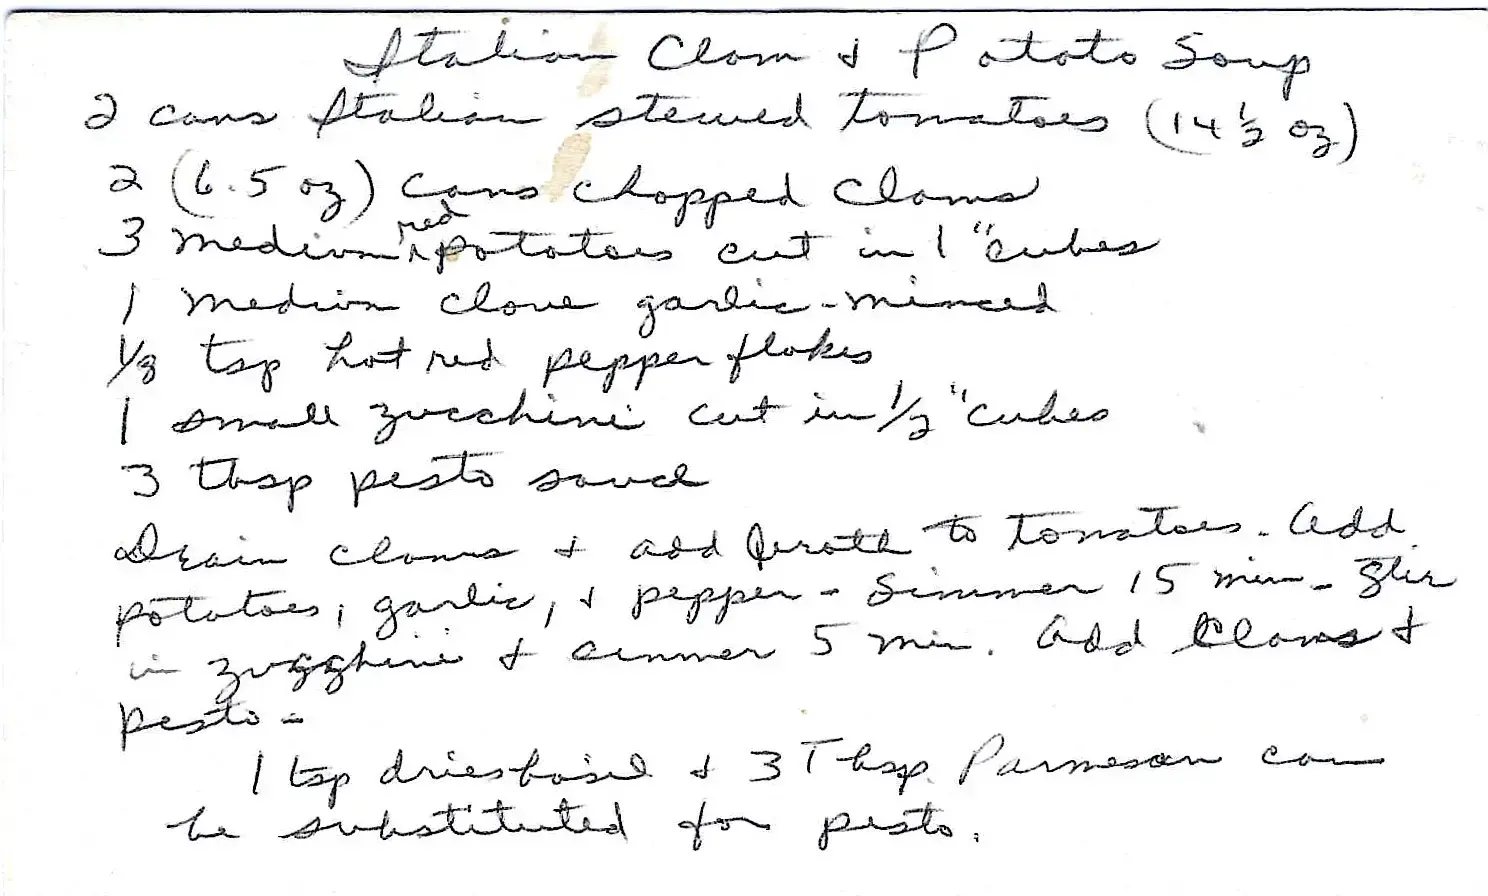 Italian Clam & Potato Soup
2 cans Italian stewed tomatoes (14 1/2 oz)
2 (6.5 oz) cans chopped clams
3 medium red potatoes cut in 1" cubes
1 medium clove garlic - minced
1/8 tsp hot red pepper flakes
1 small zucchini cut in 1/2" cubes
3 tbsp pesto sauce
Drain clams & add broth to tomatoes. Add
potatoes, garlic, & pepper - Simmer 15 min - Stir
in zugghini & simmer 5 min. Add Clams &
pesto -
1 tsp dries basil & 3 Tbsp. Parmesan can
be substituted for pesto.